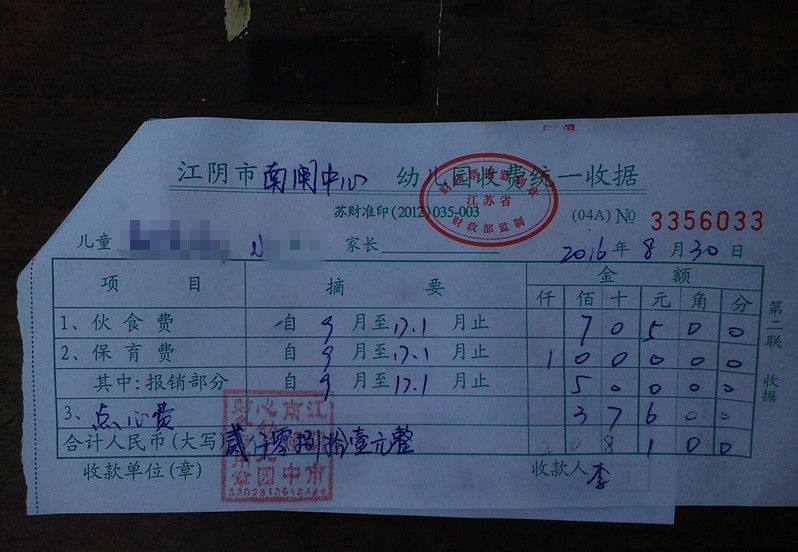 江阴市南闸中心 幼儿园收费统一收据
江苏省
财政部监制
苏财准印(2012)035-003
(04A) № 3356033
儿童 家长 2016年8月30日
项目 摘要 金额
仟 佰 十 元 角 分
1、伙食费 自9月至17.1月止 7 0 5 0 0
2、保育费 自9月至17.1月止 1 0 0 0 0 0
其中:报销部分 自9月至17.1月止 5 0 0 0 0
3、点心费 3 7 6 0 0
合计人民币(大写) 贰仟零捌拾壹元整 2 0 8 1 0 0
收款单位(章) 收款人 李
第二联 收据